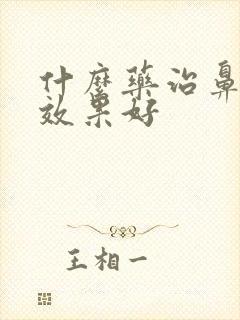 什麽藥治鼻
效果好
王相一